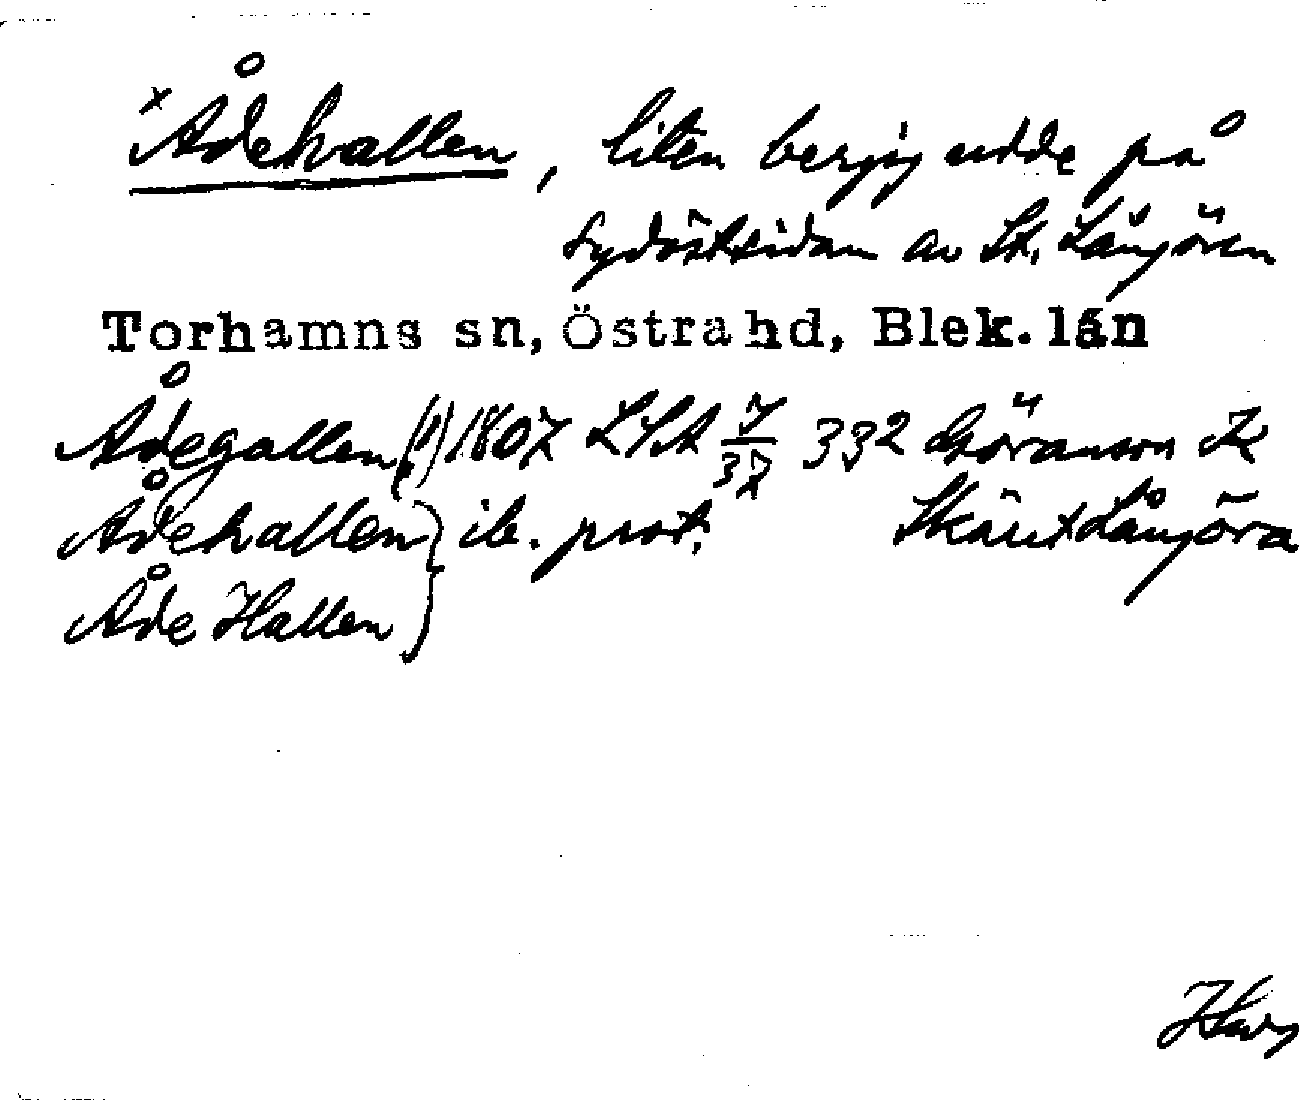 x Ådehallen, liten bergig udde på
sydöstsidan av St. Långören
Torhamns sn, Östra hd, Blek. län
Ådegallen (!) 1807 LSA 332 Göranson K
Ådehallen } ib. prot. Skärt Långöra
Åde Hallen